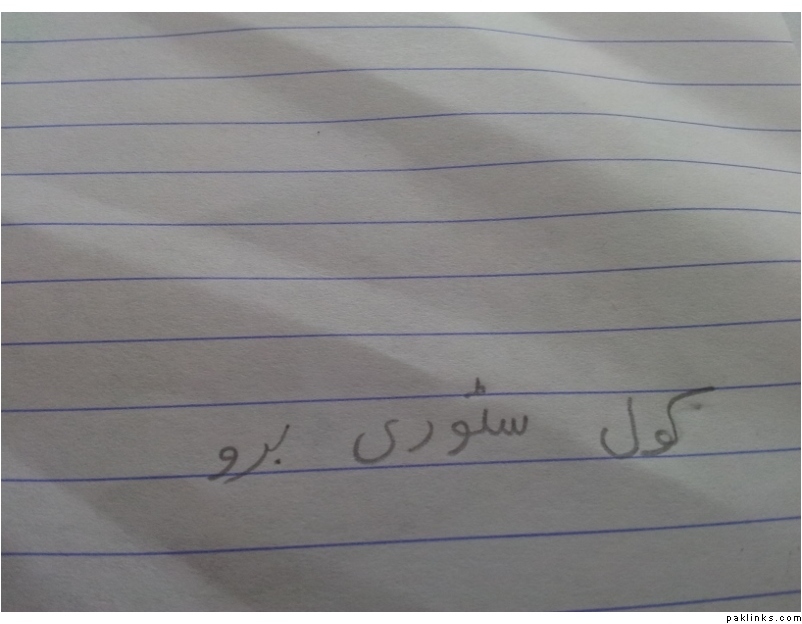 کول سٹوری برو
paklinks.com